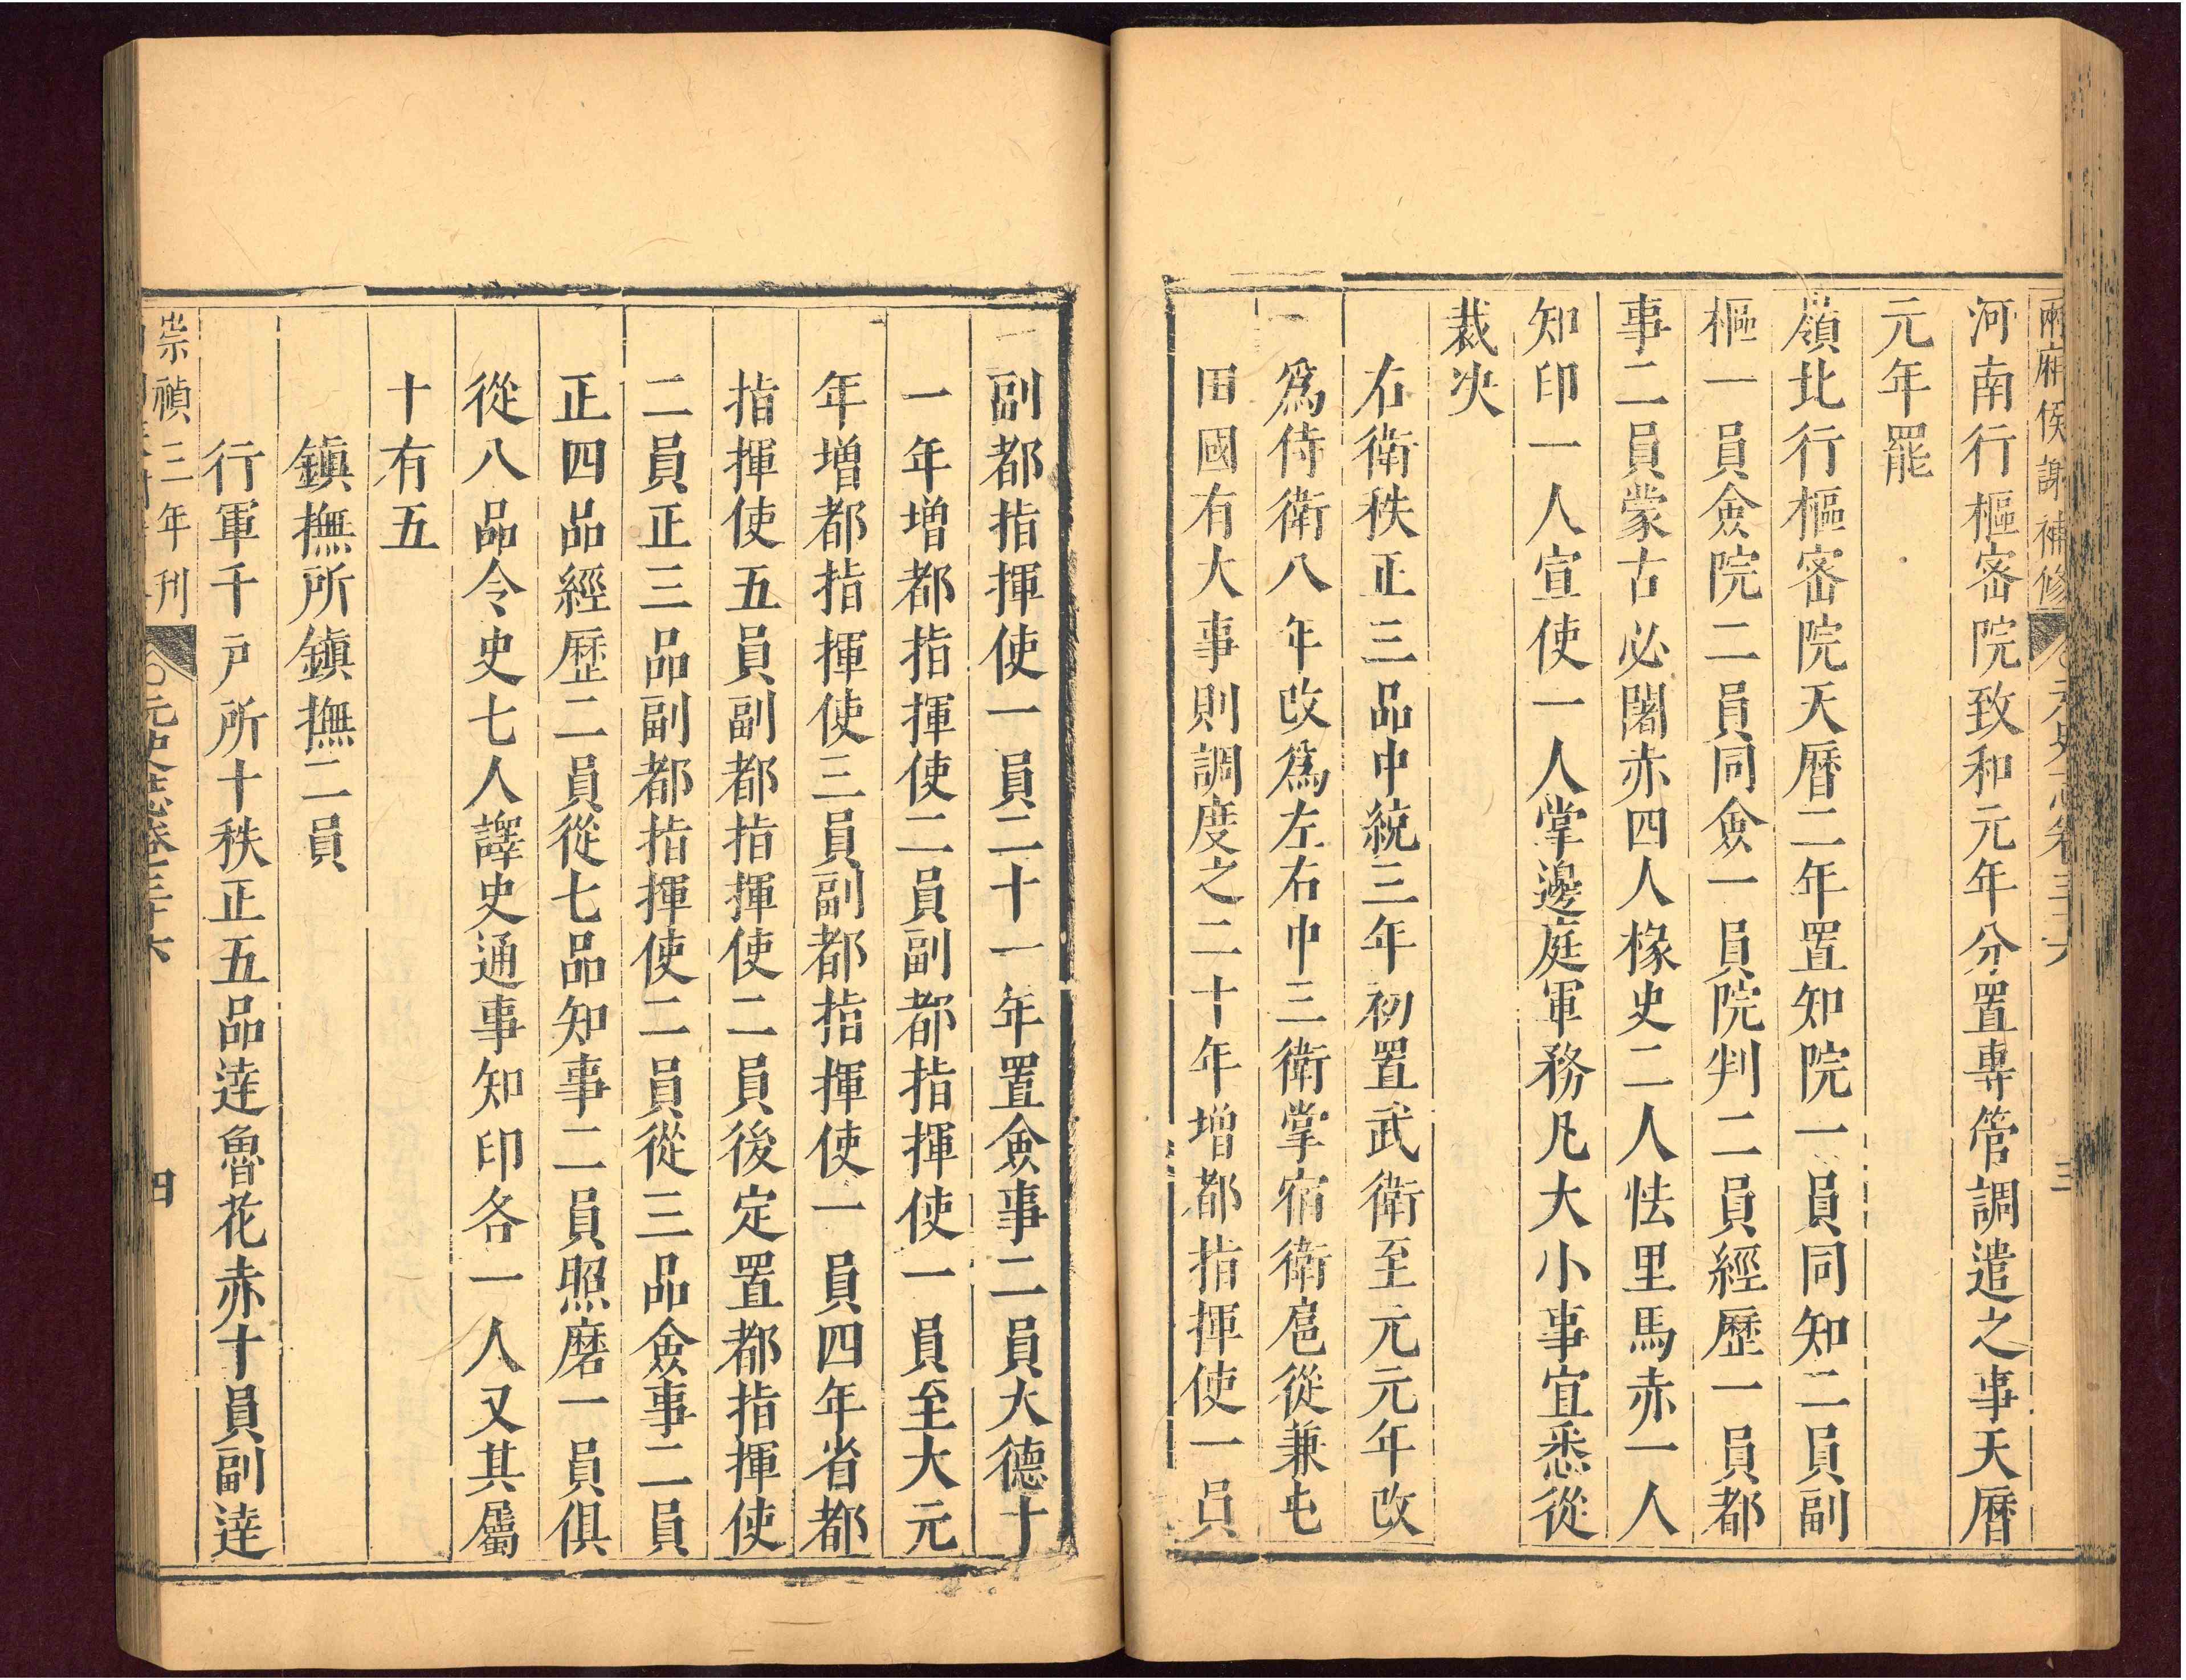 兩廂侯謝補修
河南行樞密院致和元年分置專管調遣之事天曆
元年罷
嶺北行樞密院天曆二年置知院一員同知二員副
樞一員僉院二員同僉一員院判二員經歷一員都
事二員蒙古必闍赤四人掾史二人怯里馬赤一人
知印一人宣使一人掌邊庭軍務凡大小事宜悉從
裁决
右衛秩正三品中統三年初置武衛至元元年改
爲侍衛八年改爲左右中三衛掌宿衛扈從兼屯
田國有大事則調度之二十年增都指揮使一員
副都指揮使一員二十一年置僉事二員大德十
一年增都指揮使二員副都指揮使一員至大元
年增都指揮使三員副都指揮使一員四年省都
指揮使五員副都指揮使二員後定置都指揮使
二員正三品副都指揮使二員從三品僉事二員
正四品經歷二員從七品知事二員照磨一員俱
從八品令史七人譯史通事知印各一人又其屬
十有五
鎮撫所鎮撫二員
行軍千戸所十秩正五品達魯花赤十員副達
崇禎三年刊
元史志卷三十六
四